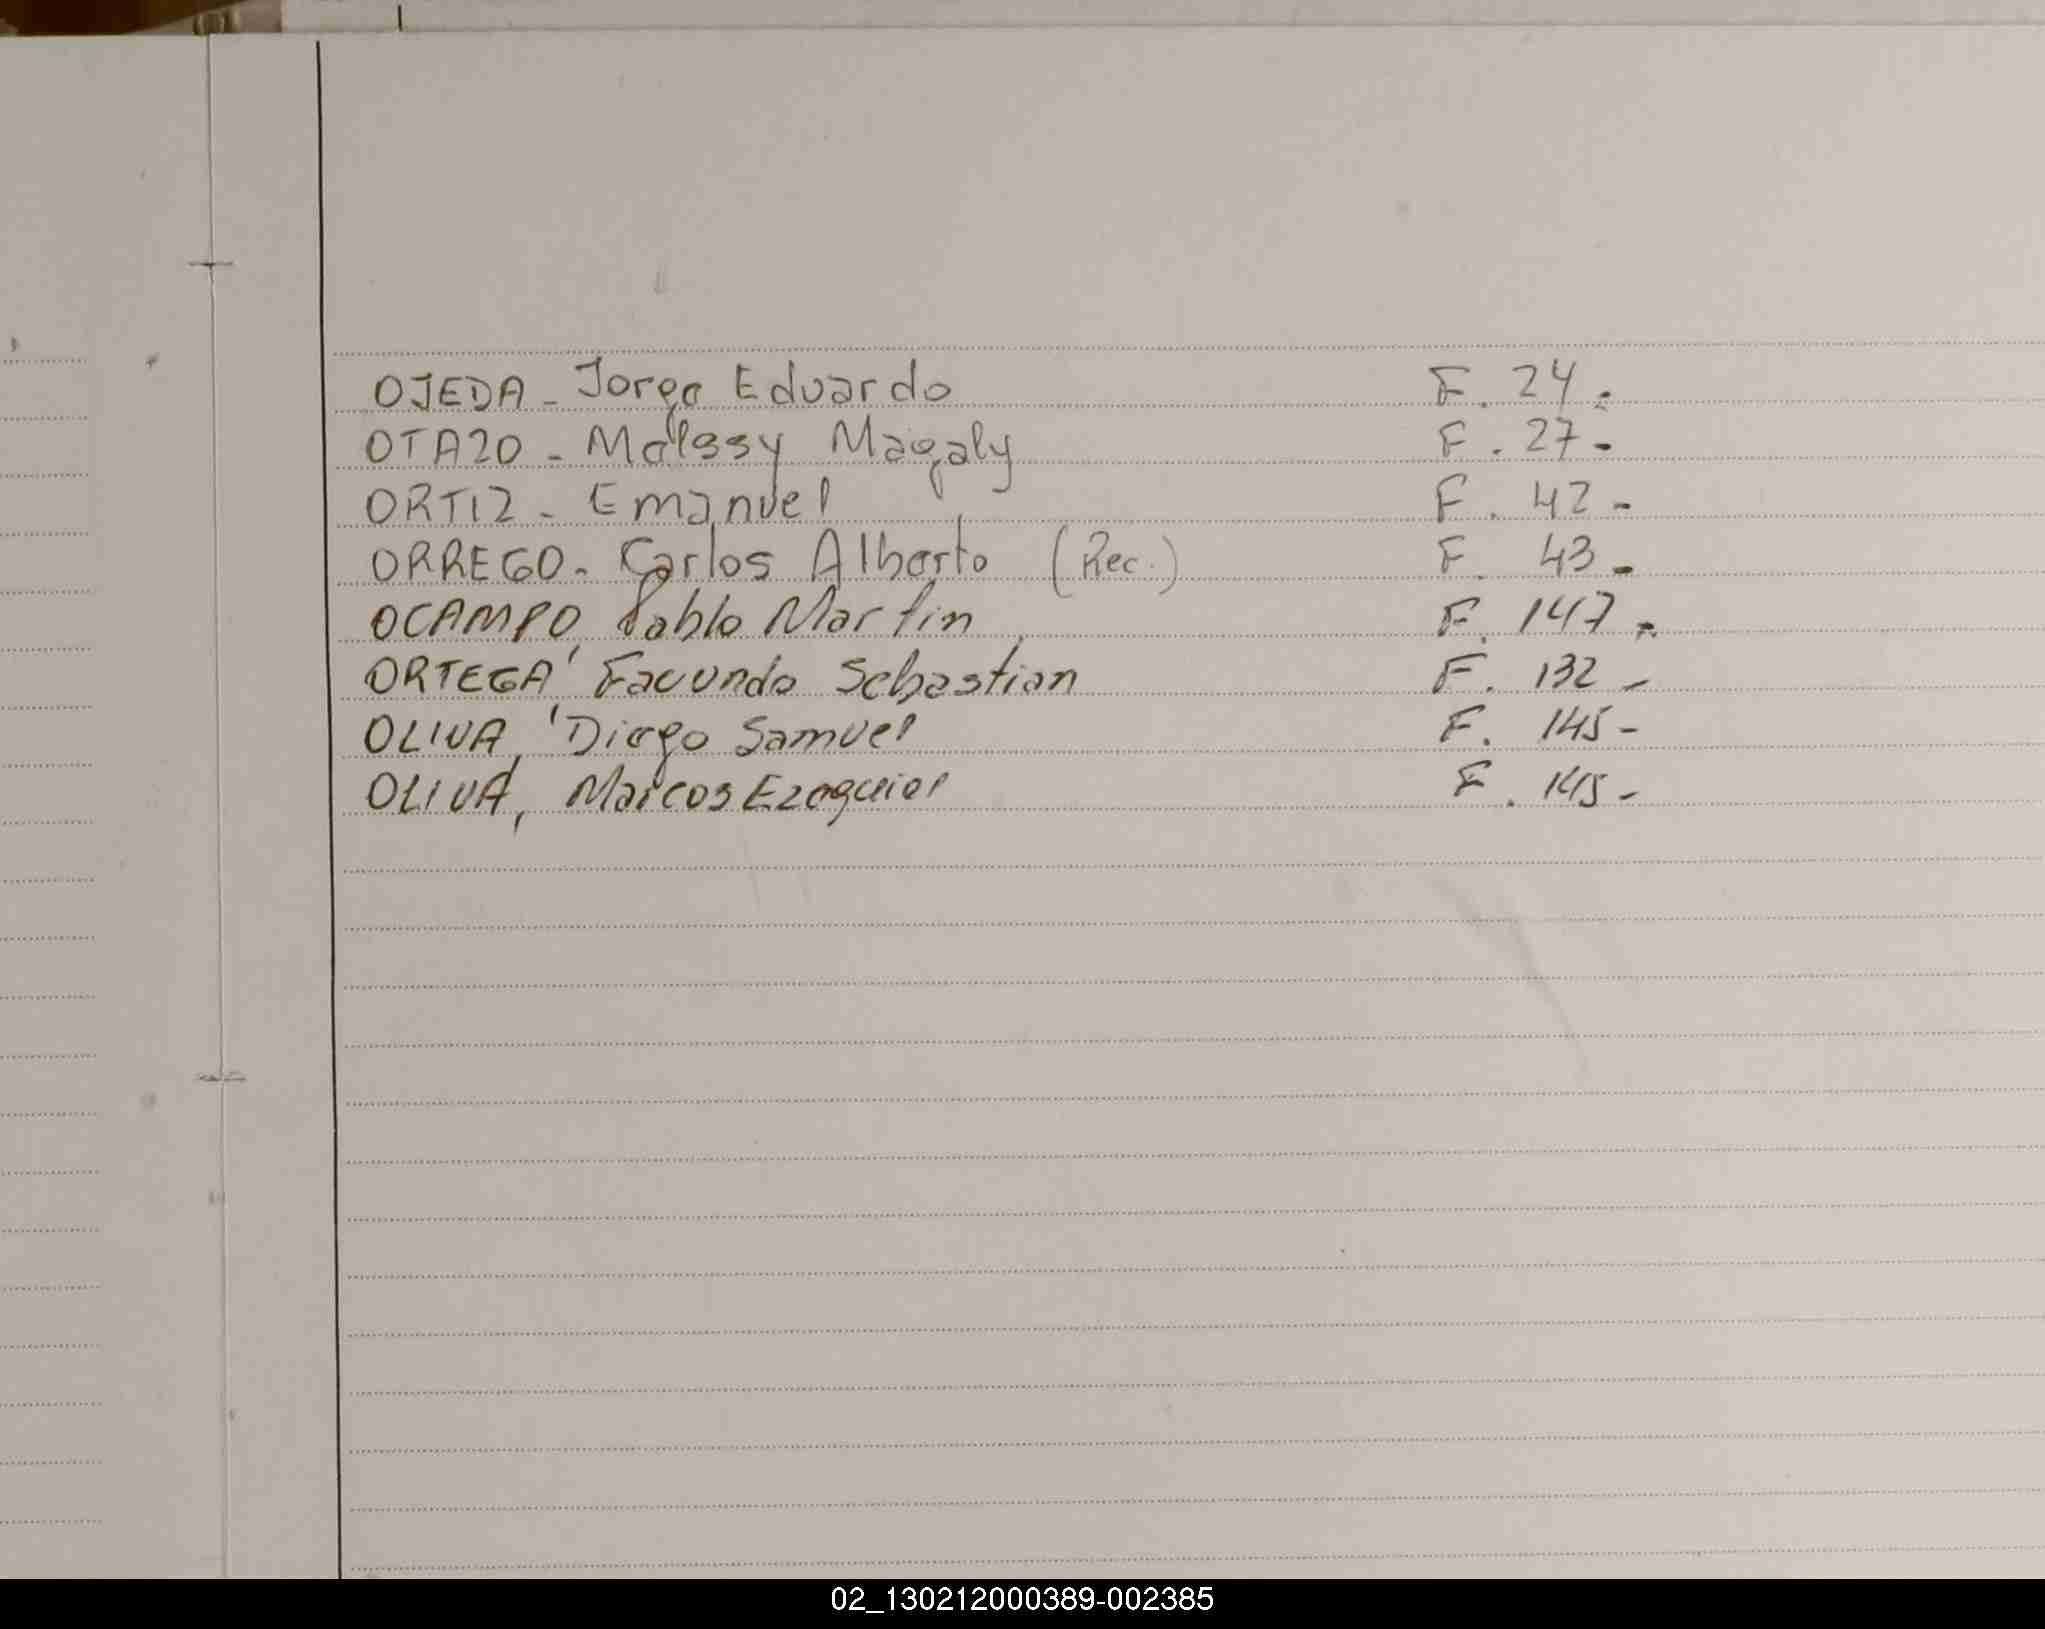 OJEDA - Jorge Eduardo F. 24.
OTAZO - Melssy Magaly F. 27-
ORTIZ - Emanuel F. 42-
ORREGO - Carlos Alberto (Rec.) F. 43-
OCAMPO, Pablo Martin F. 147-
ORTEGA, Facundo Sebastian F. 132-
OLIVA, Diego Samuel F. 145-
OLIVA, Marcos Ezequiel F. 145-
02_130212000389-002385